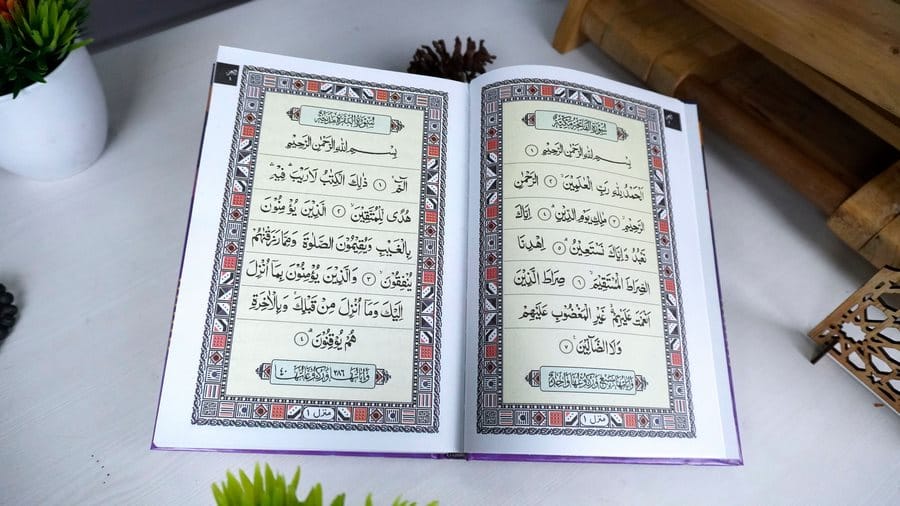 سُورَةُ الْفَاتِحَةِ مَكِّيَّةٌ
بِسْمِ اللهِ الرَّحْمٰنِ الرَّحِيْمِ
١
اَلْحَمْدُ لِلّٰهِ رَبِّ الْعٰلَمِيْنَ ٢ الرَّحْمٰنِ
الرَّحِيْمِ ٣ مٰلِكِ يَوْمِ الدِّيْنِ ٤ اِيَّاكَ
نَعْبُدُ وَاِيَّاكَ نَسْتَعِيْنُ ٥ اِهْدِنَا
الصِّرَاطَ الْمُسْتَقِيْمَ ٦ صِرَاطَ الَّذِيْنَ
اَنْعَمْتَ عَلَيْهِمْ غَيْرِ الْمَغْضُوْبِ عَلَيْهِمْ
وَلَا الضَّآلِّيْنَ ٧
منزل ١
سُورَةُ الْبَقَرَةِ مَدَنِيَّةٌ
بِسْمِ اللهِ الرَّحْمٰنِ الرَّحِيْمِ
الٓمّٓ ١ ذٰلِكَ الْكِتٰبُ لَا رَيْبَ فِيْهِ
هُدًى لِّلْمُتَّقِيْنَ ٢ الَّذِيْنَ يُؤْمِنُوْنَ
بِالْغَيْبِ وَيُقِيْمُوْنَ الصَّلٰوةَ وَمِمَّا رَزَقْنٰهُمْ
يُنْفِقُوْنَ ٣ وَالَّذِيْنَ يُؤْمِنُوْنَ بِمَآ اُنْزِلَ
اِلَيْكَ وَمَآ اُنْزِلَ مِنْ قَبْلِكَ وَبِالْاٰخِرَةِ
هُمْ يُوْقِنُوْنَ ٤
وَاٰيَاتُهَا ٢٨٦ وَرُكُوْعَاتُهَا ٤٠
منزل ١